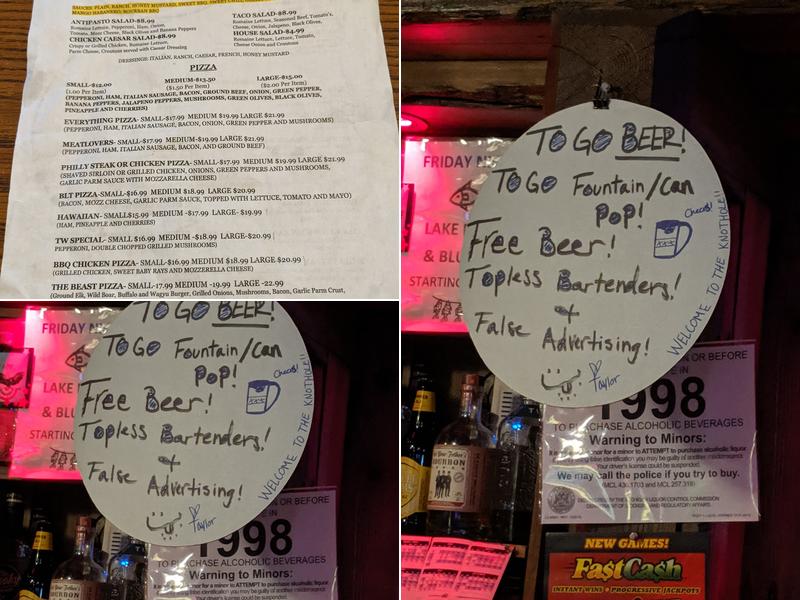 SAUCES: PLAIN, RANCH, HONEY MUSTARD, SWEET BBQ, SWEET CHILI,
MANGO HABANERO, BOURBAN BBQ
ANTIPASTO SALAD-$8.99
Romaine Lettuce, Pepperoni, Ham, Onion,
Tomato, Mozz Cheese, Black Olives and Banana Peppers
CHICKEN CAESAR SALAD-$8.99
Crispy or Grilled Chicken, Romaine Lettuce,
Parm Cheese, Croutons served with Caesar Dressing
TACO SALAD-$8.99
Romaine Lettuce, Seasoned Beef, Tomato's,
Cheese, Onion, Jalapeno, Black Olives,
HOUSE SALAD-$4.99
Romaine Lettuce, Lettuce, Tomato,
Cheese Onion and Croutons
DRESSINGS: ITALIAN, RANCH, CAESAR, FRENCH, HONEY MUSTARD
PIZZA
SMALL-$12.00 MEDIUM-$13.50 LARGE-$15.00
(1.00 Per Item) ($1.50 Per Item) ($2.00 Per Item)
(PEPPERONI, HAM, ITALIAN SAUSAGE, BACON, GROUND BEEF, ONION, GREEN PEPPER,
BANANA PEPPERS, JALAPENO PEPPERS, MUSHROOMS, GREEN OLIVES, BLACK OLIVES,
PINEAPPLE AND CHERRIES)
EVERYTHING PIZZA- SMALL-$17.99 MEDIUM $19.99 LARGE $21.99
(PEPPERONI, HAM, ITALIAN SAUSAGE, BACON, ONION, GREEN PEPPER AND MUSHROOMS)
MEATLOVERS- SMALL-$17.99 MEDIUM-$19.99 LARGE $21.99
(PEPPERONI, HAM, ITALIAN SAUSAGE, BACON, AND GROUND BEEF)
PHILLY STEAK OR CHICKEN PIZZA- SMALL-$17.99 MEDIUM $19.99 LARGE $21.99
(SHAVED SIRLOIN OR GRILLED CHICKEN, ONIONS, GREEN PEPPERS AND MUSHROOMS,
GARLIC PARM SAUCE WITH MOZZARELLA CHEESE)
BLT PIZZA-SMALL-$16.99 MEDIUM $18.99 LARGE $20.99
(BACON, MOZZ CHEESE, GARLIC PARM SAUCE, TOPPED WITH LETTUCE, TOMATO AND MAYO)
HAWAIIAN- SMALL$15.99 MEDIUM -$17.99 LARGE- $19.99
(HAM, PINEAPPLE AND CHERRIES)
TW SPECIAL- SMALL $16.99 MEDIUM -$18.99 LARGE-$20.99
PEPPERONI, DOUBLE CHOPPED GRILLED MUSHROOMS)
BBQ CHICKEN PIZZA- SMALL-$16.99 MEDIUM $18.99 LARGE $20.99
(GRILLED CHICKEN, SWEET BABY RAYS AND MOZZERELLA CHEESE)
THE BEAST PIZZA- SMALL-17.99 MEDIUM -19.99 LARGE -22.99
(Ground Elk, Wild Boar, Buffalo and Wagyu Burger, Grilled Onions, Mushrooms, Bacon, Garlic Parm Crust,
FRIDAY
LAKE
& BLU
STARTING
TO GO BEER!
TO GO Fountain/Can
Pop!
Free Beer!
Cheers!
XXX
Topless Bartenders!
+
False Advertising!
Taylor
WELCOME TO THE KNOTHOLE!!
ON OR BEFORE
E IN
1998
TO PURCHASE ALCOHOLIC BEVERAGES
Warning to Minors:
FRIDAY
LAKE
& BL
STARTING
TO GO BEER!
TO GO Fountain/Can
Pop!
Free Beer!
Cheers!
XXX
Topless Bartenders!
+
False Advertising!
Taylor
WELCOME TO THE KNOTHOLE!!
N OR BEFORE
E IN
1998
TO PURCHASE ALCOHOLIC BEVERAGES
Warning to Minors:
for a minor to ATTEMPT to purchase alcoholic liquor
Your driver's license could be suspended.
We may call the police if you try to buy.
(MCL 436.1703 and MCL 257.319)
BOURBON
NEW GAMES!
Fa$tCa$h
INSTANT WINS • PROGRESSIVE JACKPOTS